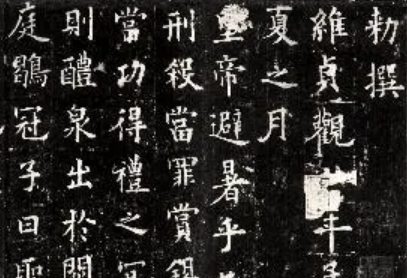 勅撰
維貞觀年
夏之月
皇帝避暑乎
刑殺當罪賞錫
當功得禮之
則醴泉出於闕
庭鶡冠子曰聖